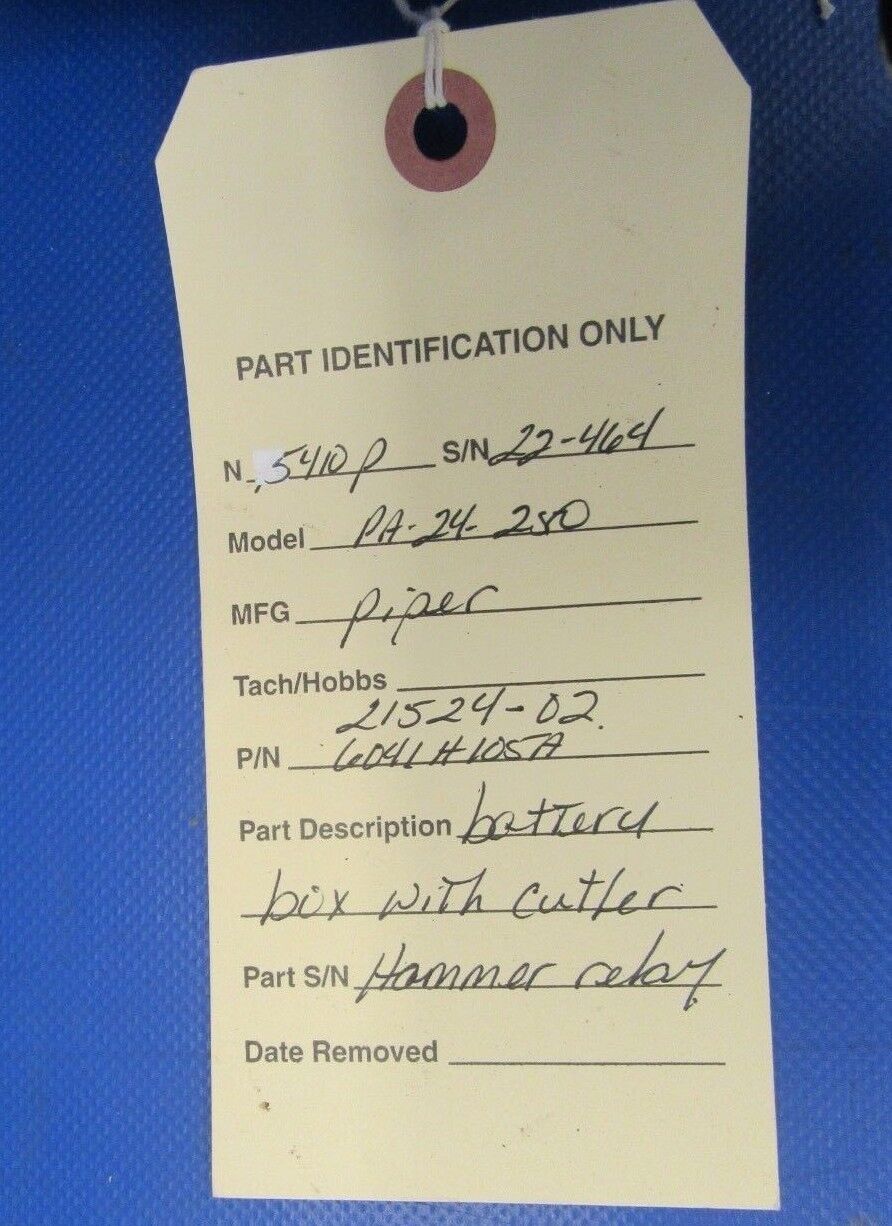 PART IDENTIFICATION ONLY
N 5410P S/N 22-464
Model PA-24-250
MFG Piper
Tach/Hobbs
21524-02
P/N 6041H105A
Part Description battery
box with cutler
Part S/N Hammer relay
Date Removed